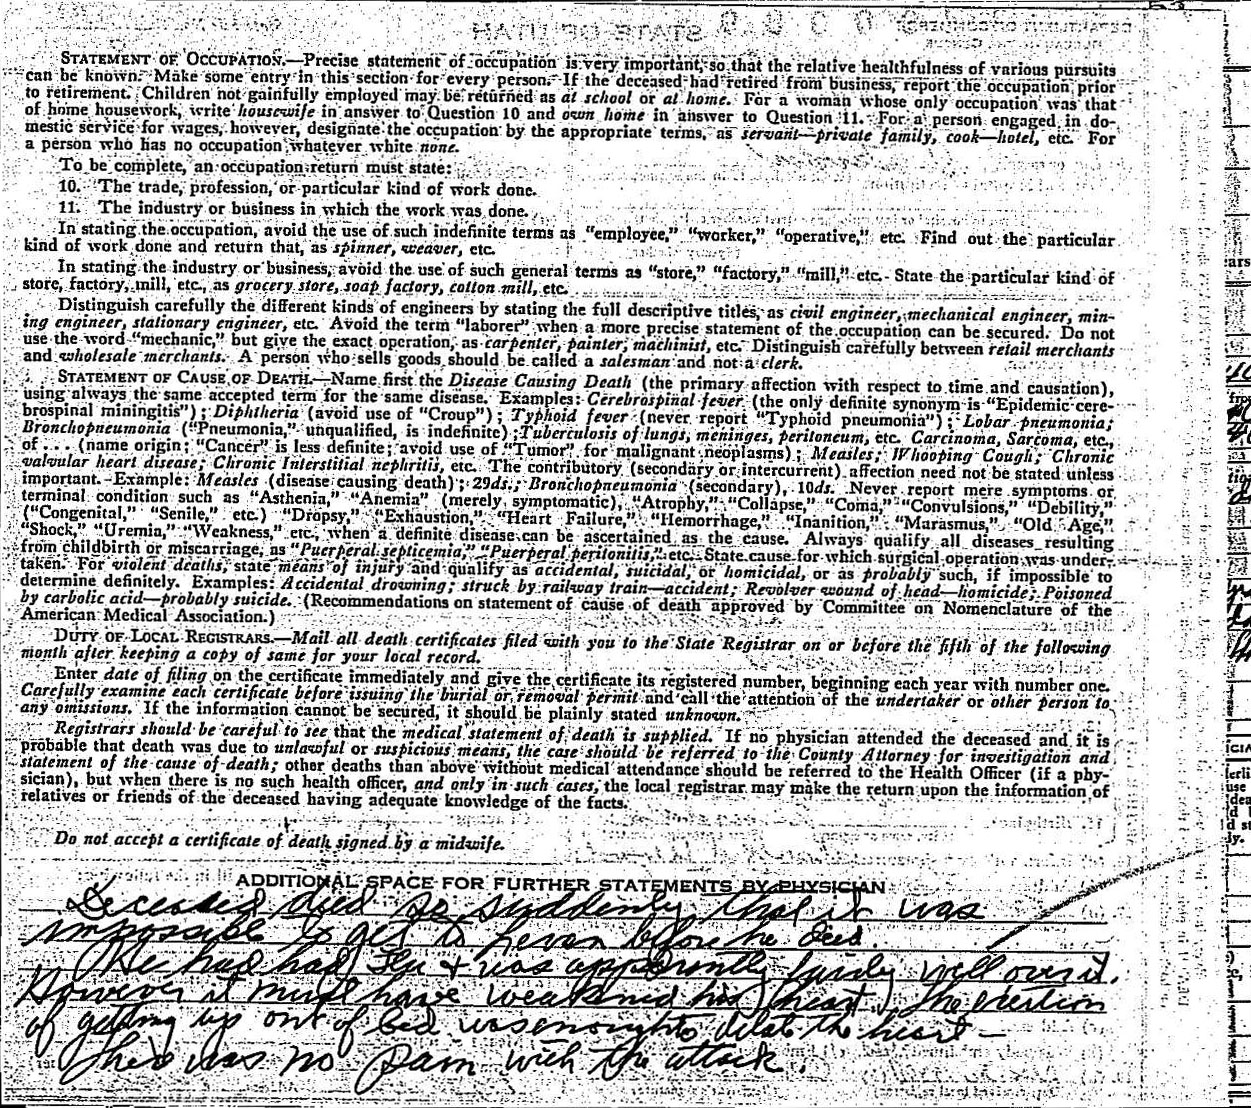 STATE OF UTAH
STATEMENT OF OCCUPATION.—Precise statement of occupation is very important, so that the relative healthfulness of various pursuits
can be known. Make some entry in this section for every person. If the deceased had retired from business, report the occupation prior
to retirement. Children not gainfully employed may be returned as at school or at home. For a woman whose only occupation was that
of home housework, write housewife in answer to Question 10 and own home in answer to Question 11. For a person engaged in do-
mestic service for wages, however, designate the occupation by the appropriate terms, as servant—private family, cook—hotel, etc. For
a person who has no occupation whatever white none.
To be complete, an occupation return must state:
10. The trade, profession, or particular kind of work done.
11. The industry or business in which the work was done.
In stating the occupation, avoid the use of such indefinite terms as "employee," "worker," "operative," etc. Find out the particular
kind of work done and return that, as spinner, weaver, etc.
In stating the industry or business, avoid the use of such general terms as "store," "factory," "mill," etc. State the particular kind of
store, factory, mill, etc., as grocery store, soap factory, cotton mill, etc.
Distinguish carefully the different kinds of engineers by stating the full descriptive titles, as civil engineer, mechanical engineer, min-
ing engineer, stationary engineer, etc. Avoid the term "laborer" when a more precise statement of the occupation can be secured. Do not
use the word "mechanic," but give the exact operation, as carpenter, painter, machinist, etc. Distinguish carefully between retail merchants
and wholesale merchants. A person who sells goods should be called a salesman and not a clerk.
STATEMENT OF CAUSE OF DEATH.—Name first the Disease Causing Death (the primary affection with respect to time and causation),
using always the same accepted term for the same disease. Examples: Cerebrospinal fever (the only definite synonym is "Epidemic cere-
brospinal miningitis"); Diphtheria (avoid use of "Croup"); Typhoid fever (never report "Typhoid pneumonia"); Lobar pneumonia;
Bronchopneumonia ("Pneumonia," unqualified, is indefinite); Tuberculosis of lungs, meninges, peritoneum, etc. Carcinoma, Sarcoma, etc.,
of . . . (name origin; "Cancer" is less definite; avoid use of "Tumor" for malignant neoplasms); Measles; Whooping Cough; Chronic
valvular heart disease; Chronic Interstitial nephritis, etc. The contributory (secondary or intercurrent) affection need not be stated unless
important. Example: Measles (disease causing death); 29ds.; Bronchopneumonia (secondary), 10ds. Never report mere symptoms or
terminal condition such as "Asthenia," "Anemia" (merely symptomatic), "Atrophy," "Collapse," "Coma," "Convulsions," "Debility,"
("Congenital," "Senile," etc.) "Dropsy," "Exhaustion," "Heart Failure," "Hemorrhage," "Inanition," "Marasmus," "Old Age,"
"Shock," "Uremia," "Weakness," etc., when a definite disease can be ascertained as the cause. Always qualify all diseases resulting
from childbirth or miscarriage, as "Puerperal septicemia," "Puerperal peritonitis," etc. State cause for which surgical operation was under-
taken. For violent deaths, state means of injury and qualify as accidental, suicidal, or homicidal, or as probably such, if impossible to
determine definitely. Examples: Accidental drowning; struck by railway train—accident; Revolver wound of head—homicide; Poisoned
by carbolic acid—probably suicide. (Recommendations on statement of cause of death approved by Committee on Nomenclature of the
American Medical Association.)
DUTY OF LOCAL REGISTRARS.—Mail all death certificates filed with you to the State Registrar on or before the fifth of the following
month after keeping a copy of same for your local record.
Enter date of filing on the certificate immediately and give the certificate its registered number, beginning each year with number one.
Carefully examine each certificate before issuing the burial or removal permit and call the attention of the undertaker or other person to
any omissions. If the information cannot be secured, it should be plainly stated unknown.
Registrars should be careful to see that the medical statement of death is supplied. If no physician attended the deceased and it is
probable that death was due to unlawful or suspicious means, the case should be referred to the County Attorney for investigation and
statement of the cause of death; other deaths than above without medical attendance should be referred to the Health Officer (if a phy-
sician), but when there is no such health officer, and only in such cases, the local registrar may make the return upon the information of
relatives or friends of the deceased having adequate knowledge of the facts.
Do not accept a certificate of death signed by a midwife.
ADDITIONAL SPACE FOR FURTHER STATEMENTS BY PHYSICIAN
Deceased died so suddenly that it was
impossible to get to before he died.
He had had Flu & was apparently fairly well over it.
However it must have weakened his heart & the exertion
of getting up out of bed was enough to dilate the heart—
There was no pain with the attack.